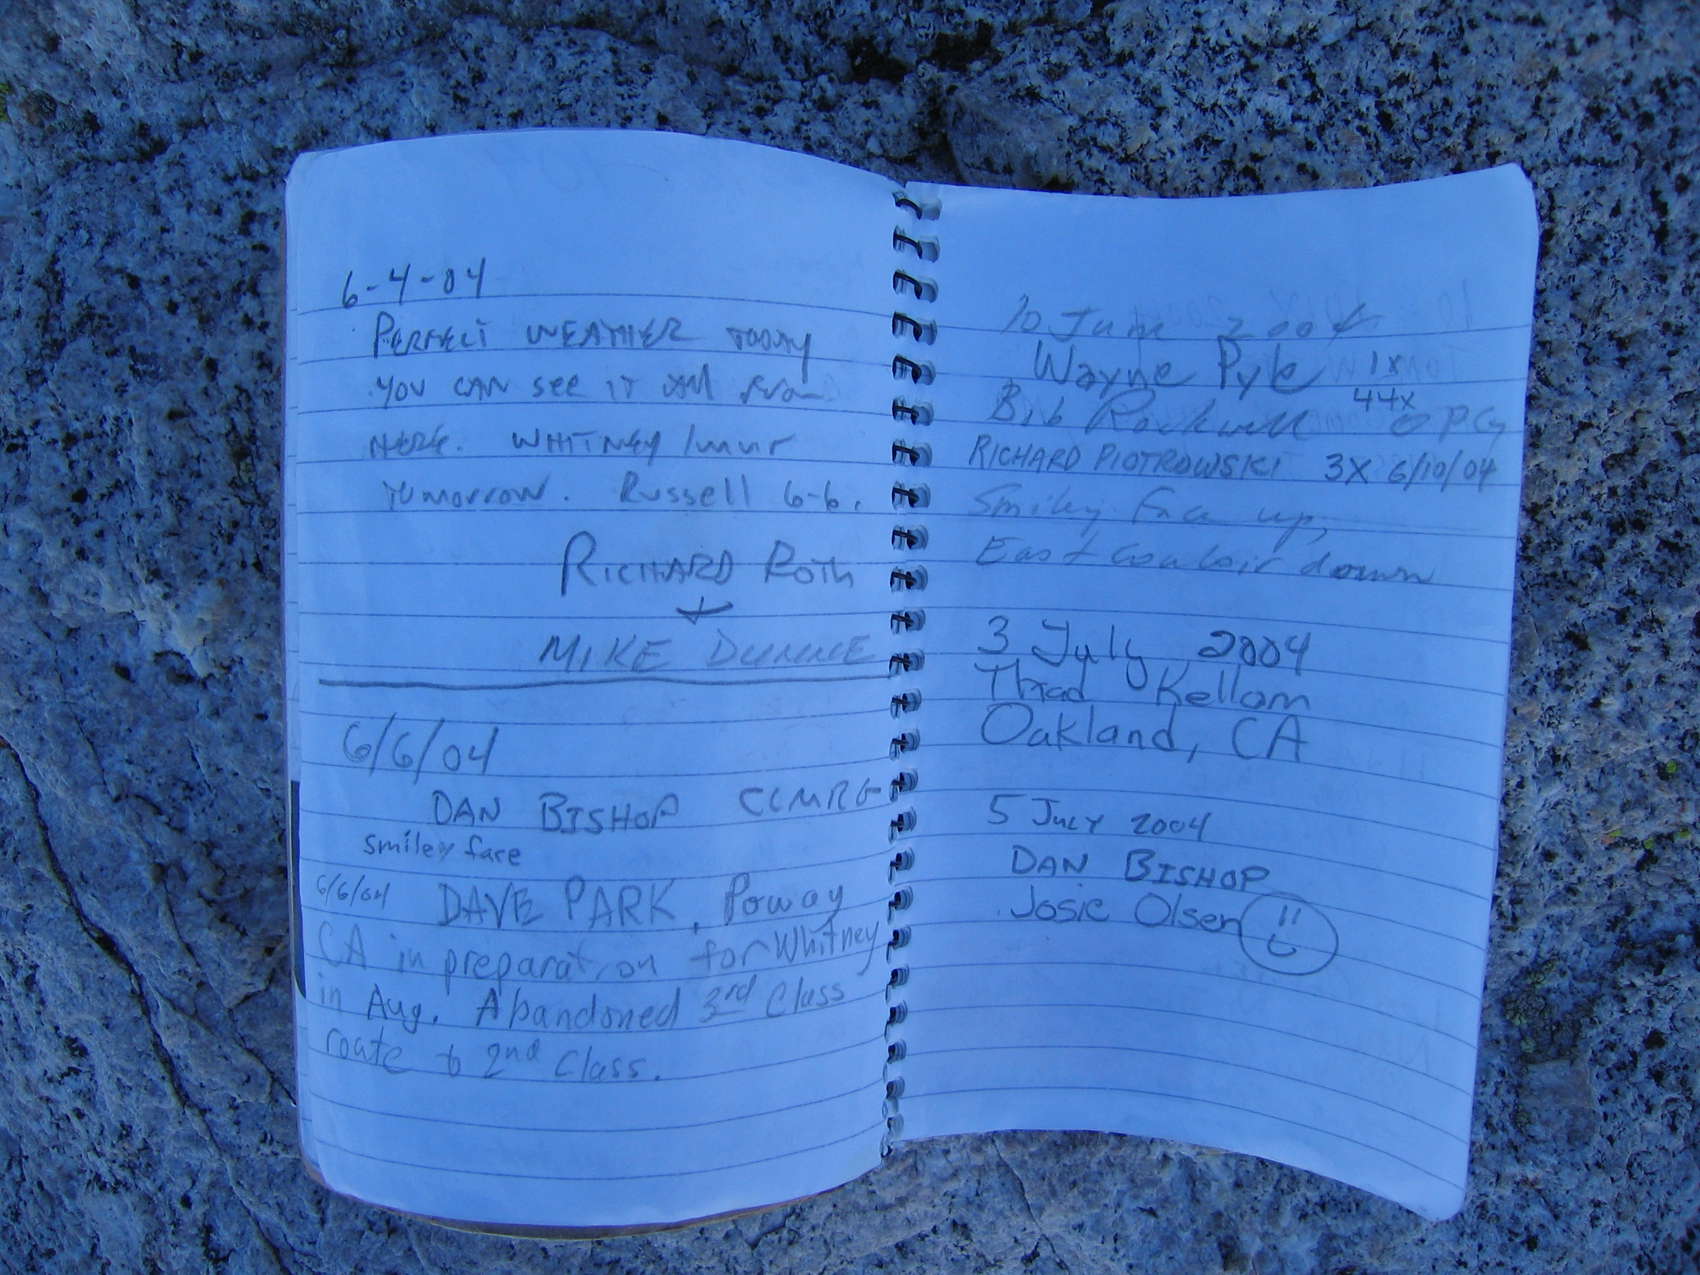 6-4-04
PERFECT WEATHER TODAY
YOU CAN SEE IT All from
HERE. WHITNEY / muir
Tomorrow. Russell 6-6.
RICHARD ROTH
+
MIKE DUNNE
6/6/04
DAN BISHOP CCMRG
smiley face
6/6/04 DAVE PARK, Poway
CA in preparation for Whitney
in Aug. Abandoned 3rd Class
route to 2nd Class.
10 June 2004
Wayne Pyle 1x
44x
Bib Rockwell PCG
RICHARD PIOTROWSKI 3X 6/10/04
Smiley face up,
East couloir down
3 July 2004
Thad Kellam
Oakland, CA
5 JULY 2004
DAN BISHOP
Josie Olsen